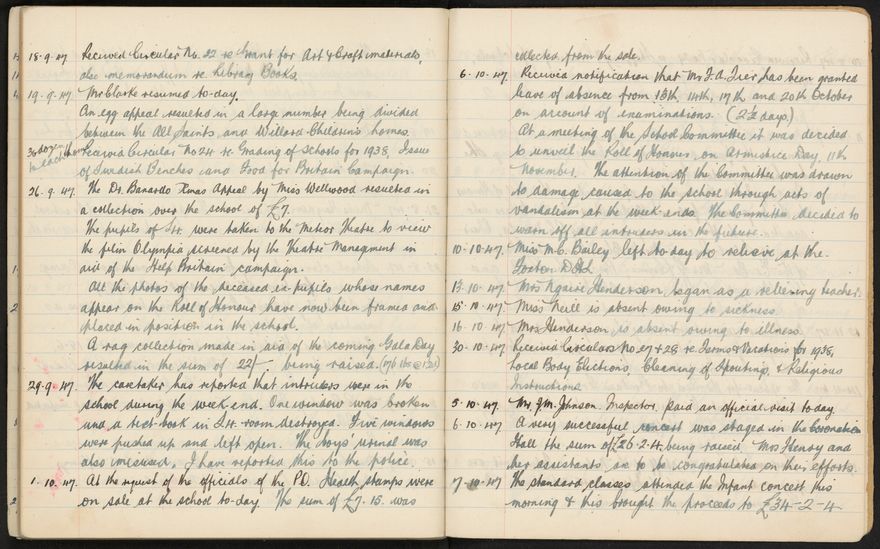 18-9-47. Received Circular No. 22 re Grant for Art & Craft materials,
also memorandum re Library Books.
19-9-47. Mr Clarke resumed to-day.
An egg appeal resulted in a large number being divided
between the All Saints and Willard Children's homes.
Received Circular No 24 re Grading of Schools for 1938, Issue
of Swedish Benches and Food for Britain Campaign.
26.9.47. The Dr. Banardo Xmas Appeal by Miss Wellwood resulted in
a collection over the school of £7.
The pupils of S4. were taken to the Meteor Theatre to view
the film Olympia screened by the Theatre Managment in
aid of the Help Britain campaign.
All the photos of the deceased ex-pupils whose names
appear on the Roll of Honour have now been framed and
placed in position in the school.
A rag collection made in aid of the coming Gala Day
resulted in the sum of 22/- being raised. (176 lbs @ 1½d)
29-9-47. The caretaker has reported that intruders were in the
school during the week-end. One window was broken
and a text-book in S4. room destroyed. Five windows
were pushed up and left open. The boys' urinal was
also misused. I have reported this to the police.
1-10-47. At the request of the officials of the P.O. Health stamps were
on sale at the school to-day. The sum of £7.15. was
collected from the sale.
6-10-47. Received notification that Mr J.A. has been granted
leave of absence from 13th, 14th, 17th and 20th October
on account of examinations. (2½ days.)
At a meeting of the School Committee it was decided
to unveil the Roll of Honour, on Armistice Day, 11th
November. The attention of the Committee was drawn
to damage caused to the school through acts of
vandalism at the week-ends. The Committee decided to
warn off all intruders in the future.
10-10-47. Miss M.C. Bailey left to-day to relieve at the
Foxton D.H.S.
13-10-47. Mrs Henderson, began as a relieving teacher.
15-10-47. Miss Neill is absent owing to sickness.
16-10-47. Mrs Henderson, is absent owing to illness.
30-10-47. Received Circulars No 27 & 28 re Terms & Vacations for 1938,
Local Body Elections, Cleaning of Spouting, & Religious
Instructions.
5-10-47. Mr. J.M. Johnson. Inspector paid an official visit to day.
6-10-47. A very successful concert was staged in the Coronation
Hall the sum of £26-2-4. being raised. Mrs Henry and
her assistants are to be congratulated on their efforts.
7-10-47. The standard classes attended the Infant concert this
morning & this brought the proceeds to £34-2-4